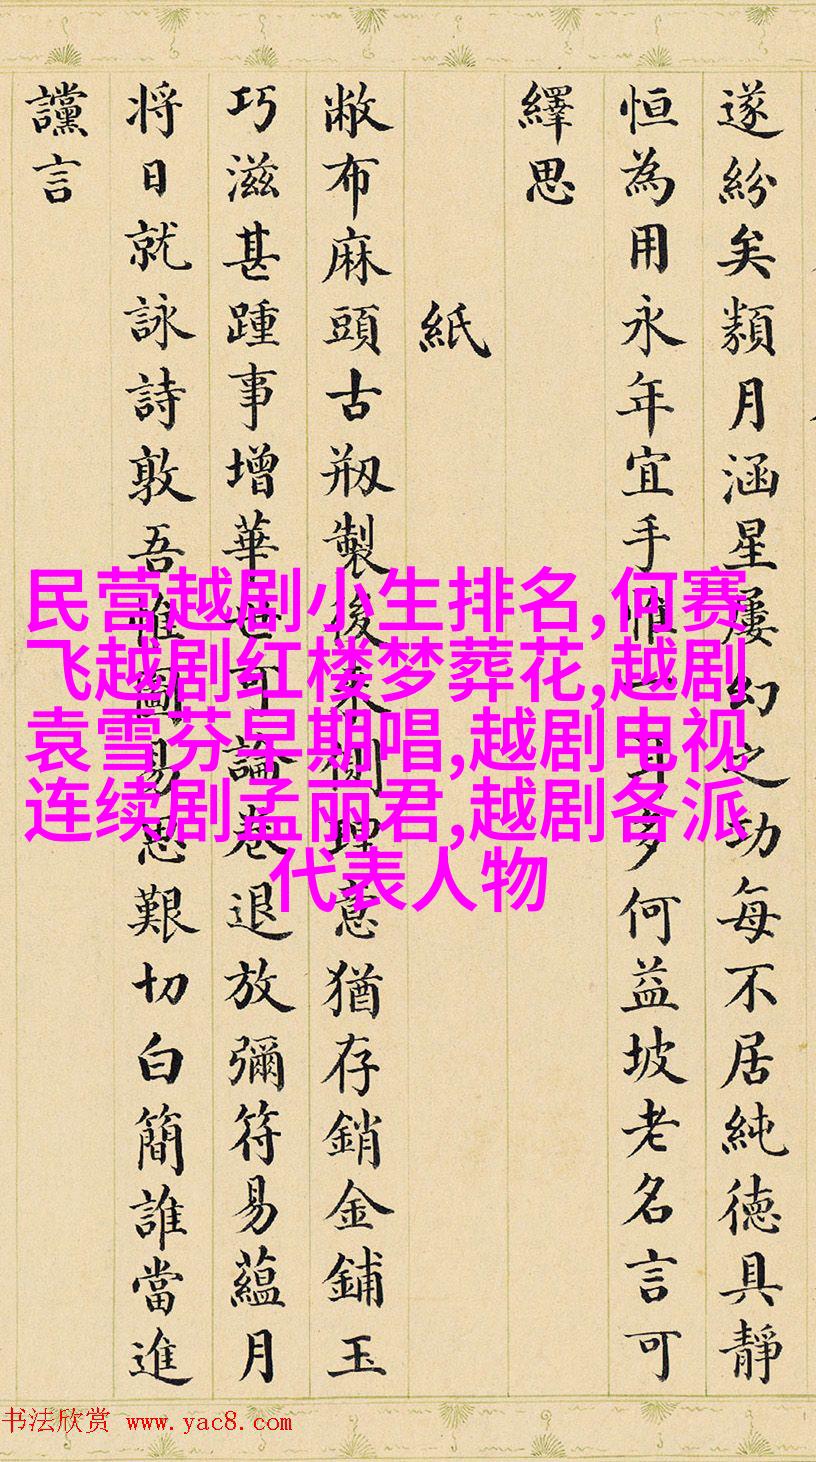 遂紛矣類月涵星屢幻之功每不居純德具靜
恒為用永年宜手惟一耳多何益坡老名言可
繹思
紙
敝布麻頭古剏製後來側理意猶存銷金鋪玉
巧滋甚踵事增華世可論卷退放彌符易蘊月
将日就詠詩敦吾惟圖易思艱切白簡誰當進
讜言
民营越剧小生排名,何赛
飞越剧红楼梦葬花,越剧
袁雪芬早期唱,越剧电视
连续剧孟丽君,越剧各派
代表人物
书法欣赏 www.yac8.com